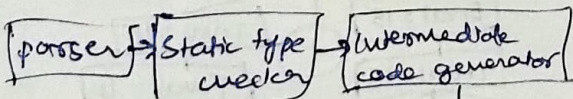 parser
Static type
checker
intermediate
code generator